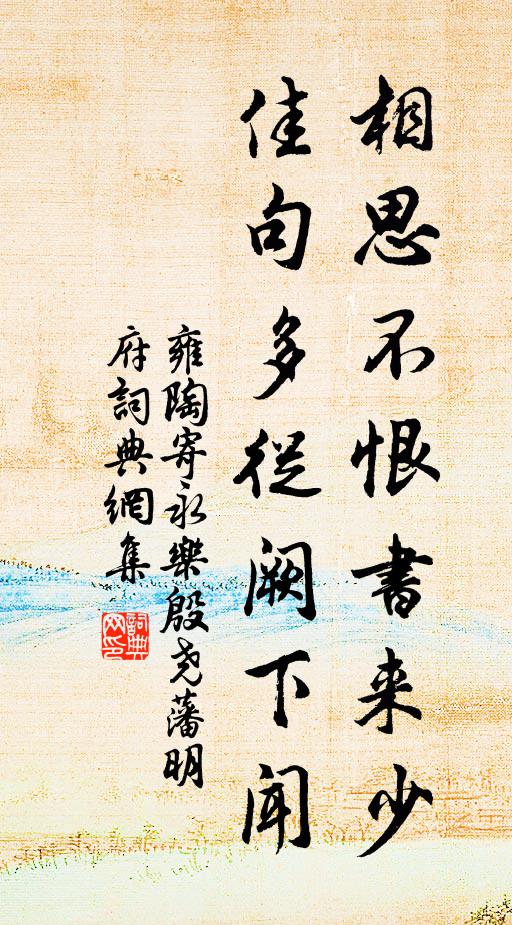 相思不恨書来少
佳句多從闕下聞
雍陶寄永樂殷尧藩明
府詞典網集
詞典網印